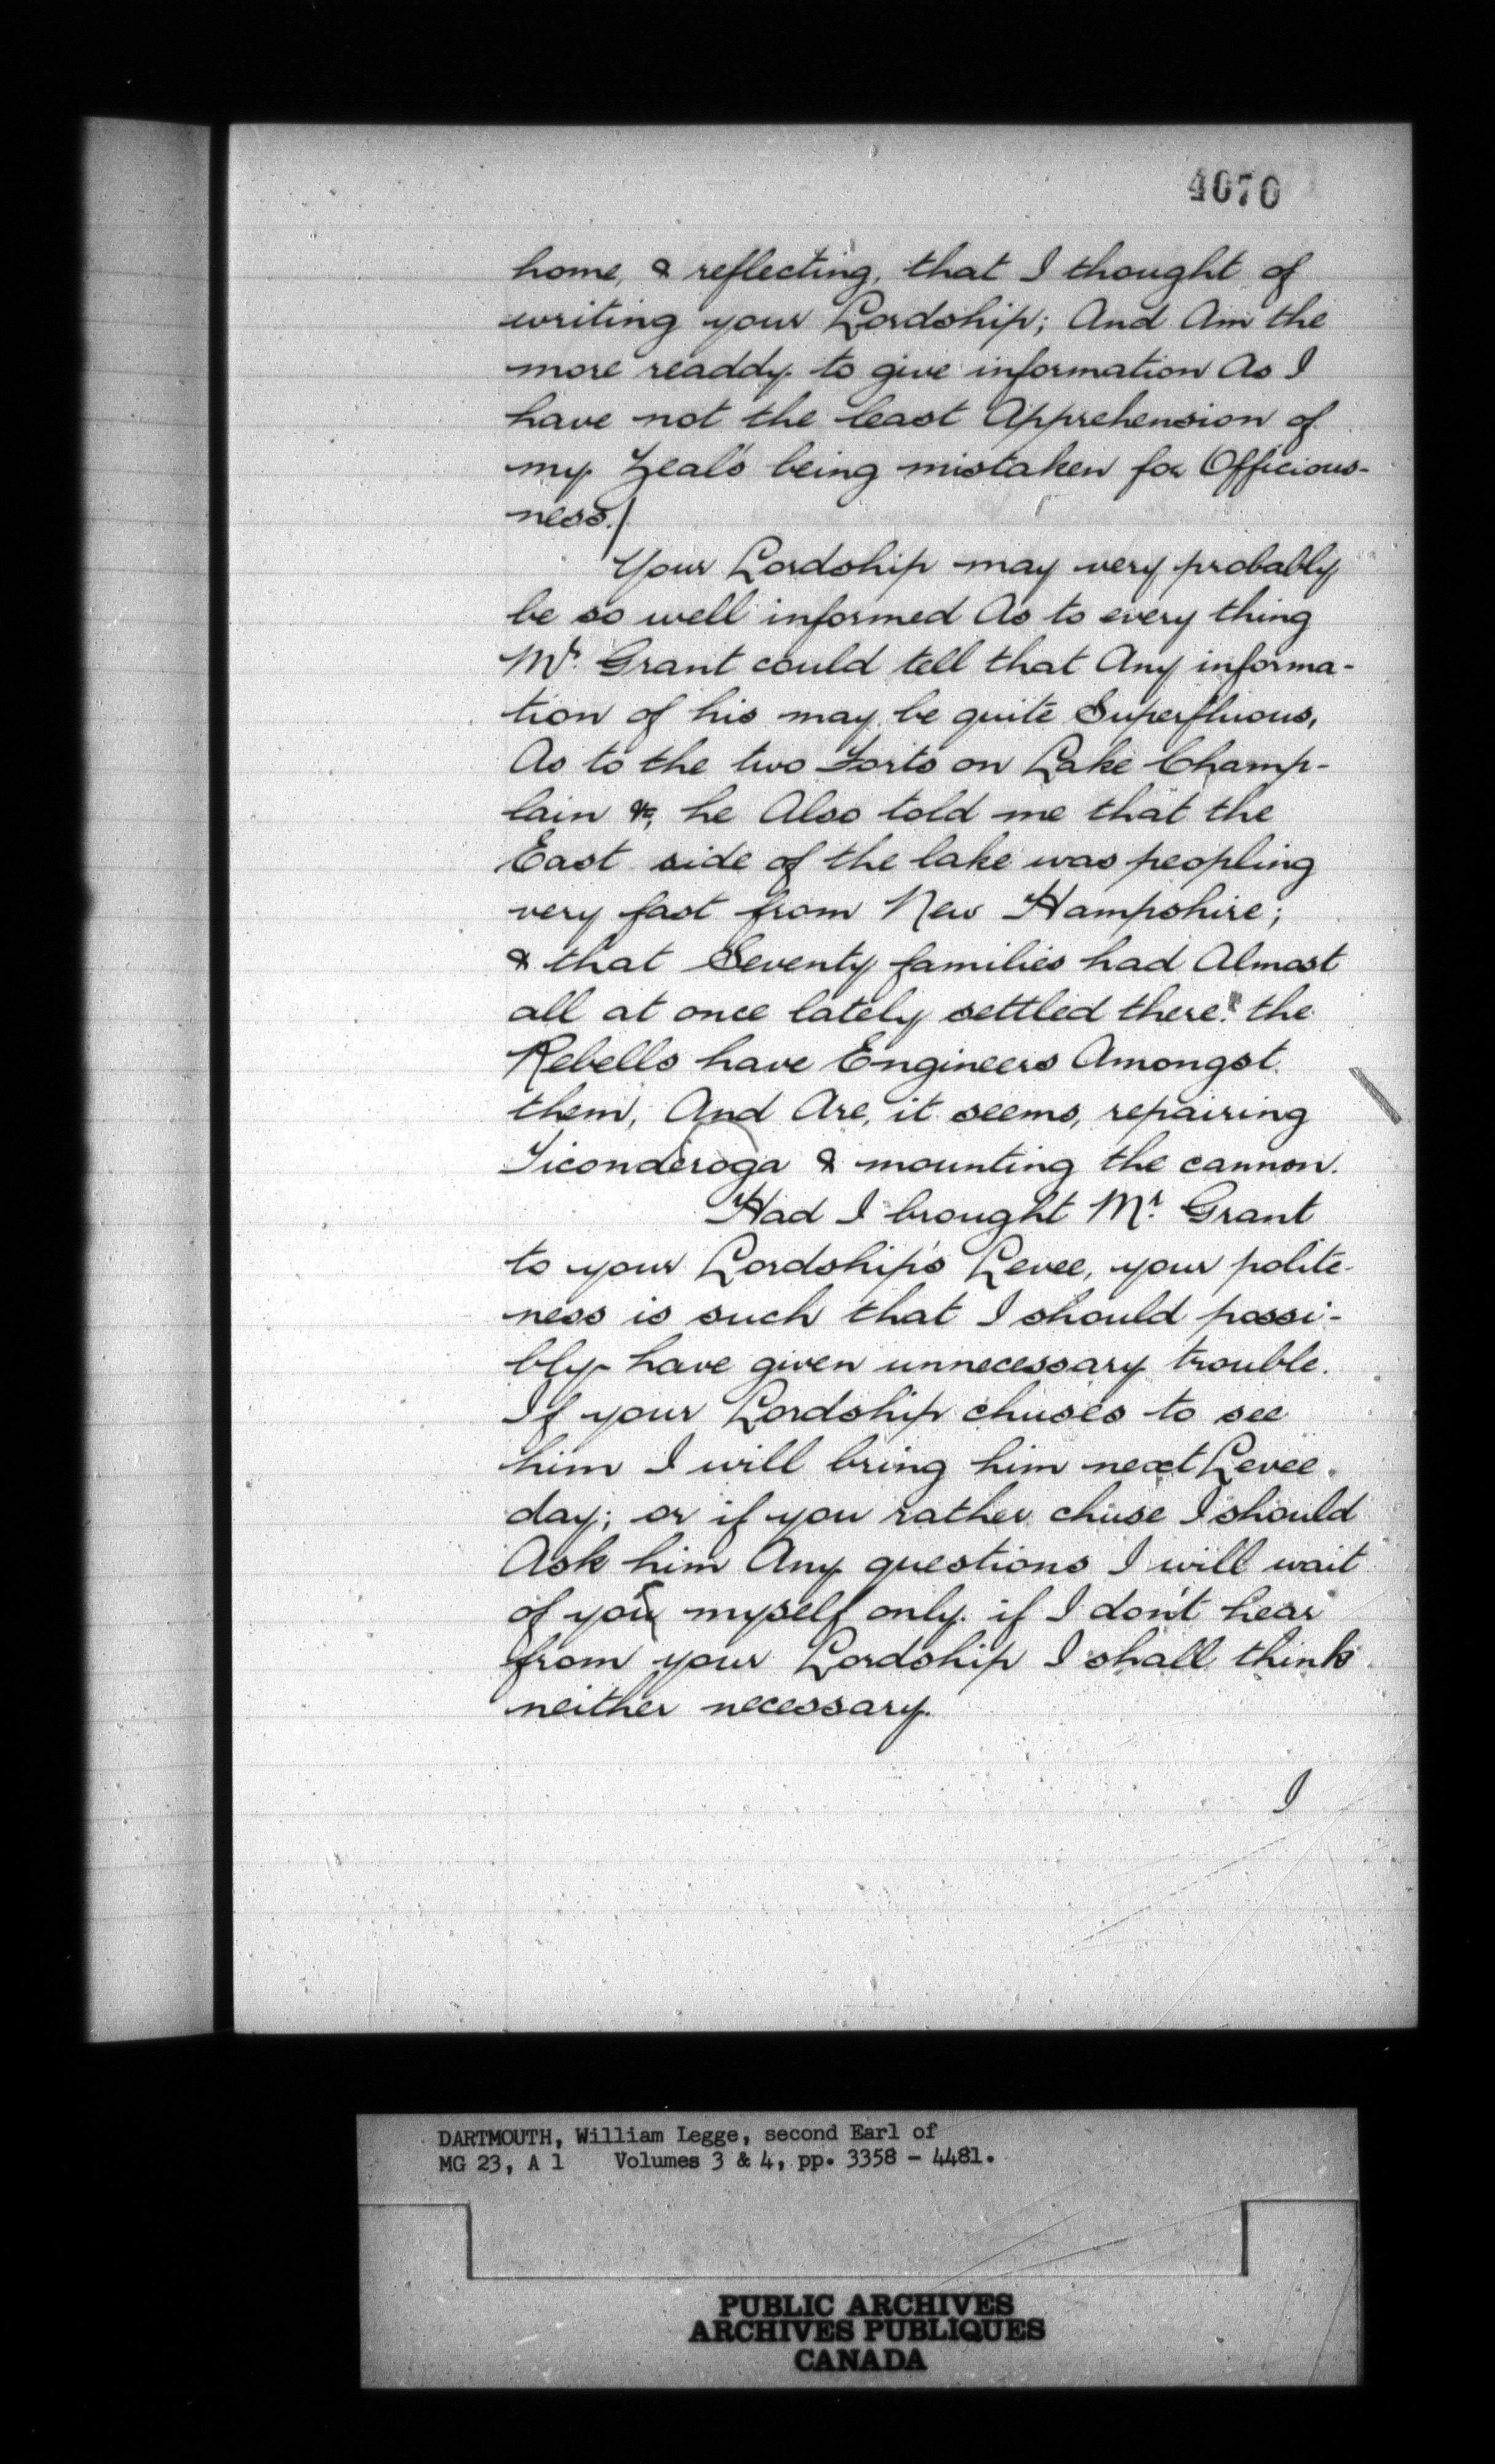 4070
home, & reflecting, that I thought of
writing your Lordship; And Am the
more readdy to give information As I
have not the least Apprehension of
my Zeal's being mistaken for Officious-
ness./
Your Lordship may very probably
be so well informed As to every thing
Mr. Grant could tell that Any informa-
tion of his may be quite Superfluous,
As to the two Forts on Lake Champ-
lain &c, he Also told me that the
East side of the lake was peopling
very fast from New Hampshire;
& that Seventy families had Almost
all at once lately settled there: the
Rebells have Engineers Amongst
them, And Are, it seems, repairing
Ticonderoga & mounting the cannon.
Had I brought Mr. Grant
to your Lordship's Levee, your polite-
ness is such that I should possi-
bly have given unnecessary trouble.
If your Lordship chuses to see
him I will bring him next Levee
day; or if you rather chuse I should
Ask him Any questions I will wait
of you myself only. if I don't hear
from your Lordship I shall think
neither necessary.
I
DARTMOUTH, William Legge, second Earl of
MG 23, A 1 Volumes 3 & 4, pp. 3358 - 4481.
PUBLIC ARCHIVES
ARCHIVES PUBLIQUES
CANADA